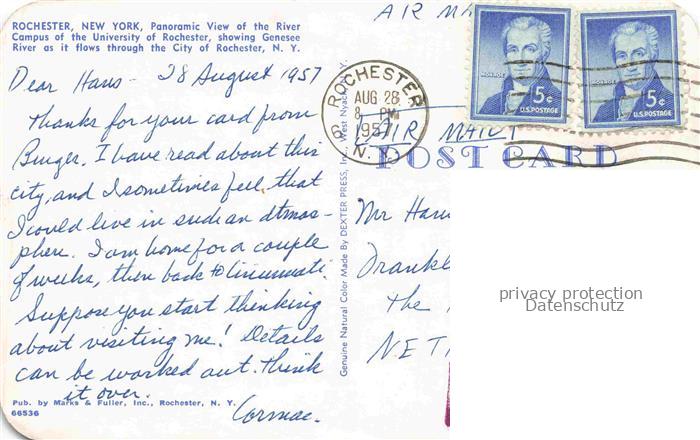 ROCHESTER, NEW YORK, Panoramic View of the River
Campus of the University of Rochester, showing Genesee
River as it flows through the City of Rochester, N. Y.
Dear Hans - 28 August 1957
Thanks for your card from
Bruges. I have read about this
city, and I sometimes feel that
I could live in such an atmos-
phere. I am home for a couple
of weeks, then back to Cincinnati.
Suppose you start thinking
about visiting me! Details
can be worked out. Think
it over.
Cormac.
Pub. by Marks & Fuller, Inc., Rochester, N. Y.
66536
Genuine Natural Color Made By DEXTER PRESS, Inc., West Nyack, N. Y.
AIR MA
ROCHESTER
AUG 28
8 PM
1957
N.Y.
MONROE
5¢
U.S. POSTAGE
MONROE
5¢
U.S. POSTAGE
AIR MAIL
POST CARD
Mr Han
the
NET
privacy protection
Datenschutz